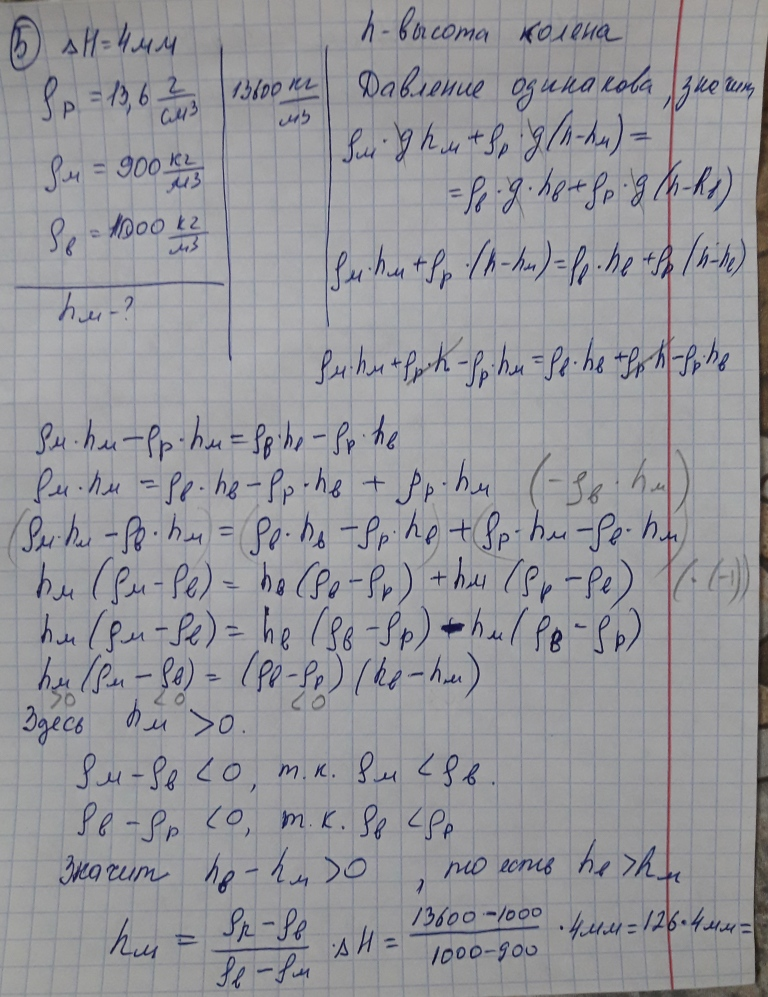 ⑤ ΔH=4мм
ρр = 13,6 г/см³
13600 кг/м³
ρм = 900 кг/м³
ρв = 1000 кг/м³
hм - ?
h - высота колена
Давление одинакова, значит,
ρм · g hм + ρр · g (h-hм) =
= ρв · g · hв + ρр · g (h-hв)
ρм · hм + ρр · (h-hм) = ρв · hв + ρр (h-hв)
ρм·hм + ρр·h - ρр·hм = ρв·hв + ρр h - ρр·hв
ρм · hм - ρр · hм = ρв · hв - ρр · hв
ρм · hм = ρв · hв - ρр · hв + ρр · hм (-ρв · hм)
(ρм·hм - ρв · hм) = (ρв · hв - ρр · hв) + (ρр · hм - ρв · hм)
hм (ρм - ρв) = hв (ρв - ρр) + hм (ρр - ρв) (·(-1))
hм (ρм - ρв) = hв (ρв - ρр) - hм (ρв - ρр)
hм (ρм - ρв) = (ρв - ρр) (hв - hм)
>0 <0 <0
Здесь hм > 0.
ρм - ρв < 0, т.к. ρм < ρв.
ρв - ρр < 0, т.к. ρв < ρр
Значит hв - hм > 0, то есть hв > hм
hм = (ρр - ρв)/(ρв - ρм) · ΔH = (13600-1000)/(1000-900) · 4мм = 126·4мм =